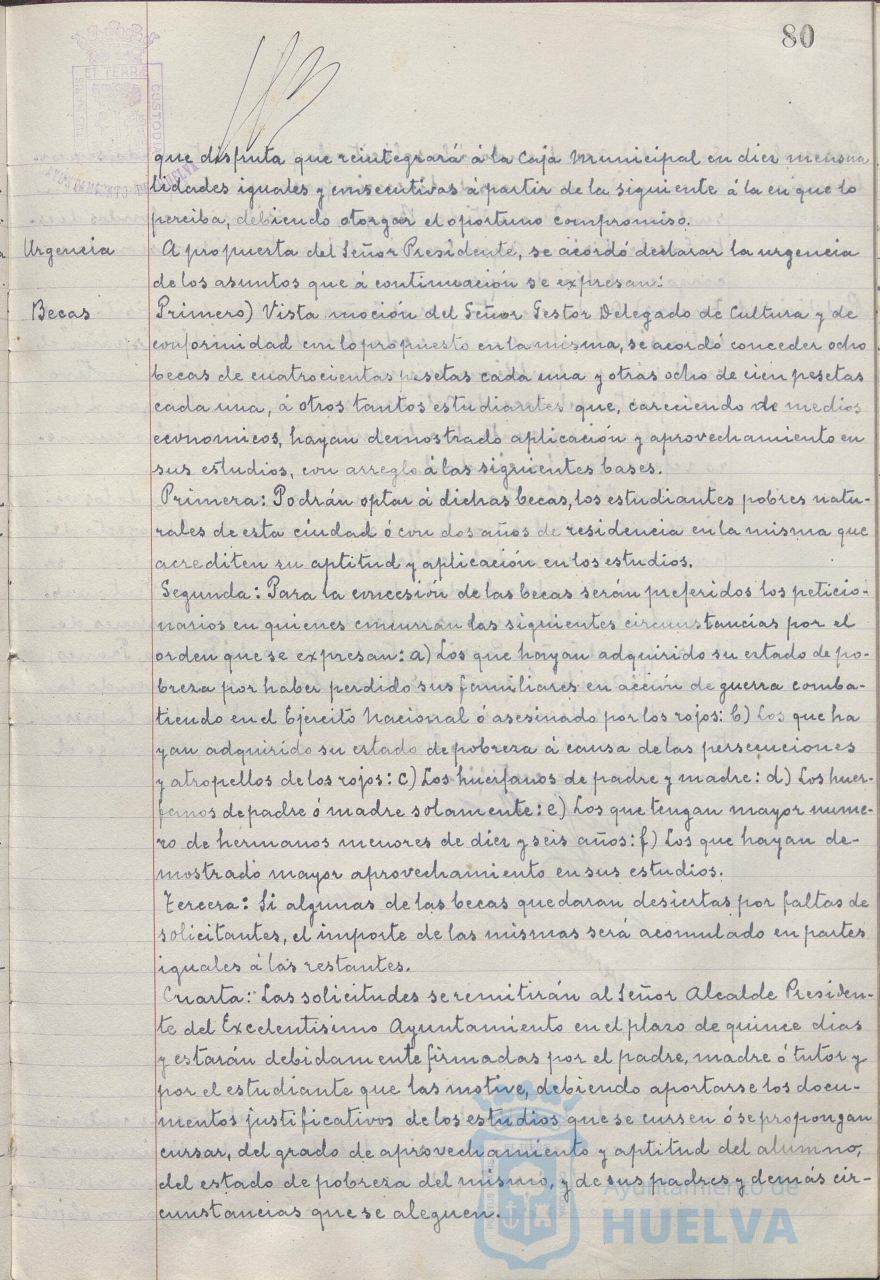 80
EL TERRÆ
CUSTODIA
que disfruta que reintegrará á la Caja Municipal en diez mensua
lidades iguales y consecutivas á partir de la siguiente á la en que lo
perciba, debiendo otorgar el oportuno compromiso.
Urgencia
A propuesta del Señor Presidente, se acordó declarar la urgencia
de los asuntos que á continuación se expresan:
Becas
Primero) Vista moción del Señor Gestor Delegado de Cultura y de
conformidad con lo propuesto en la misma, se acordó conceder ocho
becas de cuatrocientas pesetas cada una y otras ocho de cien pesetas
cada una, á otros tantos estudiantes que, careciendo de medios
economicos, hayan demostrado aplicación y aprovechamiento en
sus estudios, con arreglo á las siguientes bases.
Primera: Podrán optar á dichas becas, los estudiantes pobres natu-
rales de esta ciudad ó con dos años de residencia en la misma que
acrediten su aptitud y aplicación en los estudios.
Segunda: Para la concesión de las becas serán preferidos los peticio-
narios en quienes concurran las siguientes circunstancias por el
orden que se expresan: a) Los que hayan adquirido su estado de po-
breza por haber perdido sus familiares en acción de guerra comba-
tiendo en el Ejercito Nacional ó asesinado por los rojos: b) Los que ha
yan adquirido su estado de pobreza á causa de las persecuciones
y atropellos de los rojos: c) Los huerfanos de padre y madre: d) Los huer-
fanos de padre ó madre solamente: e) Los que tengan mayor nume-
ro de hermanos menores de diez y seis años: f) Los que hayan de-
mostrado mayor aprovechamiento en sus estudios.
Tercera: Si algunas de las becas quedaran desiertas por faltas de
solicitantes, el importe de las mismas será acomulado en partes
iguales á las restantes.
Cuarta: Las solicitudes se remitirán al Señor Alcalde Presiden-
te del Excelentisimo Ayuntamiento en el plazo de quince dias
y estarán debidamente firmadas por el padre, madre ó tutor y
por el estudiante que las motive, debiendo aportarse los docu-
mentos justificativos de los estudios que se cursen ó se propongan
cursar, del grado de aprovechamiento y aptitud del alumno,
del estado de pobreza del mismo, y de sus padres y demás cir-
cunstancias que se aleguen.
Ayuntamiento de
HUELVA